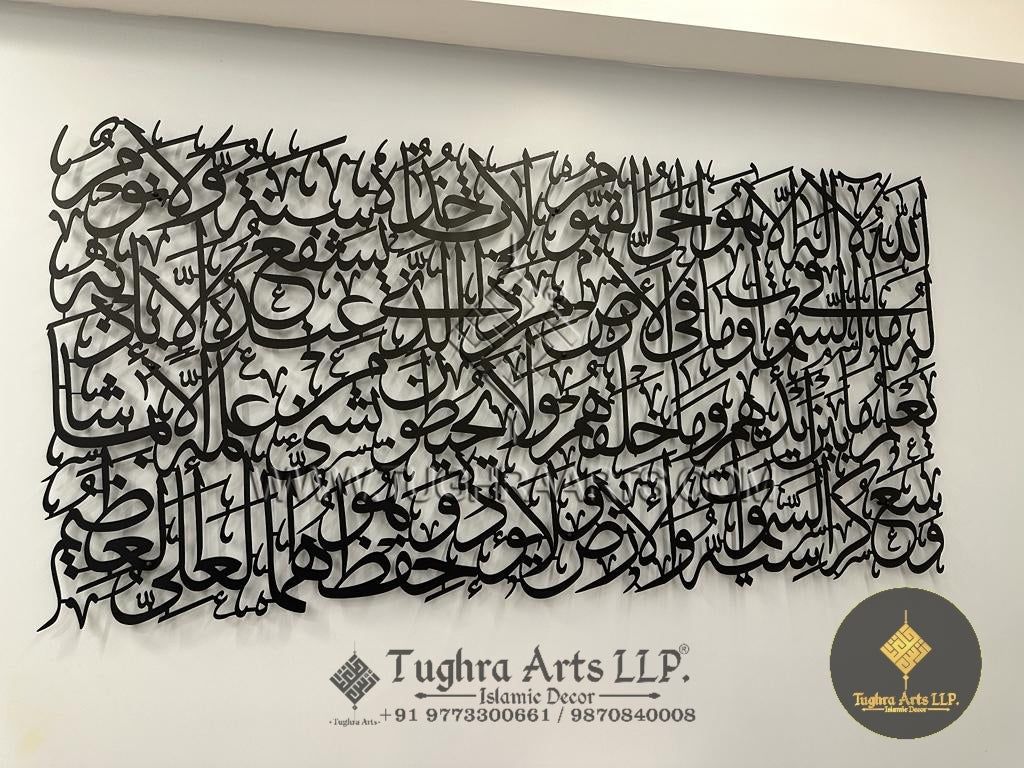 اللّٰهُ لا اله الا هو الحي القيوم لا تاخذه سنة ولا نوم
له ما في السموات وما في الارض من ذا الذي يشفع عنده الا باذنه
يعلم ما بين ايديهم وما خلفهم ولا يحيطون بشيء من علمه الا بما شاء
وسع كرسيه السموات والارض ولا يؤده حفظهما وهو العلي العظيم
WWW.TUGHRAARTS.COM
Tughra Arts LLP.®
Islamic Decor
Tughra Arts
+91 9773300661 / 9870840008
Tughra Arts LLP.
Islamic Decor